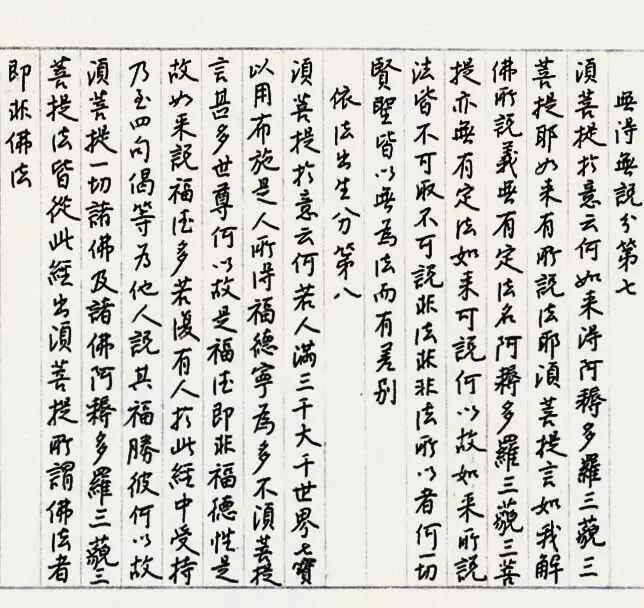 無得無説分第七
須菩提於意云何如来得阿耨多羅三藐三
菩提耶如来有所説法耶須菩提言如我解
佛所説義無有定法名阿耨多羅三藐三菩
提亦無有定法如来可説何以故如来所説
法皆不可取不可説非法非非法所以者何一切
賢聖皆以無為法而有差别
依法出生分第八
須菩提於意云何若人滿三千大千世界七寶
以用布施是人所得福德寧為多不須菩提
言甚多世尊何以故是福德即非福德性是
故如来説福德多若復有人於此經中受持
乃至四句偈等為他人説其福勝彼何以故
須菩提一切諸佛及諸佛阿耨多羅三藐三
菩提法皆從此經出須菩提所謂佛法者
即非佛法